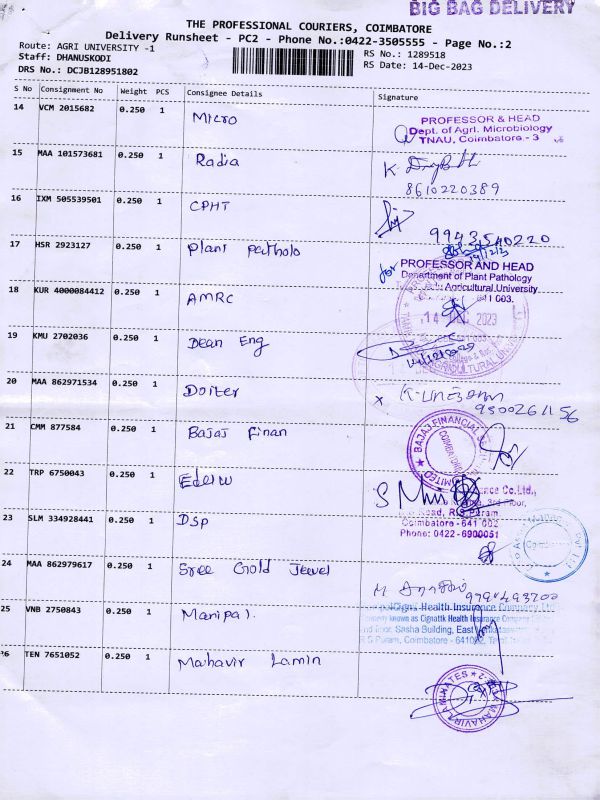 BIG BAG DELIVERY
THE PROFESSIONAL COURIERS, COIMBATORE
Delivery Runsheet - PC2 - Phone No.:0422-3505555 - Page No.:2
Route: AGRI UNIVERSITY -1
RS No.: 1289518
Staff: DHANUSKODI
RS Date: 14-Dec-2023
DRS No.: DCJB128951802
S No Consignment No Weight PCS Consignee Details Signature
14 VCM 2015682 0.250 1 Micro
PROFESSOR & HEAD
Dept. of Agrl. Microbiology
TNAU, Coimbatore - 3
15 MAA 101573681 0.250 1 Radia
8610220389
16 IXM 505539501 0.250 1 CPHT
9943540220
17 HSR 2923127 0.250 1 Plant patholo
for PROFESSOR AND HEAD
Department of Plant Pathology
Agricultural University
641 003.
18 KUR 4000084412 0.250 1 AMRC
14 DEC 2023
19 KMU 2702036 0.250 1 Dean Eng
20 MAA 862971534 0.250 1 Doiter
9500261156
21 CMM 877584 0.250 1 Bajaj Finan
BAJAJ FINANCIAL
LIMITED
22 TRP 6750043 0.250 1 Edelw
ance Co.Ltd.,
3rd Floor,
Road, R.S Puram,
Coimbatore - 641 002
Phone: 0422-6900051
23 SLM 334928441 0.250 1 Dsp
24 MAA 862979617 0.250 1 Sree Gold Jewel
25 VNB 2750843 0.250 1 Manipal.
Cigna Health Insurance Company Ltd
known as Cignattk Health Insurance Company
Floor, Sasha Building, East
R S Puram, Coimbatore - 641
26 TEN 7651052 0.250 1 Mahavir Lamin
MAHAVIR LAMINATES